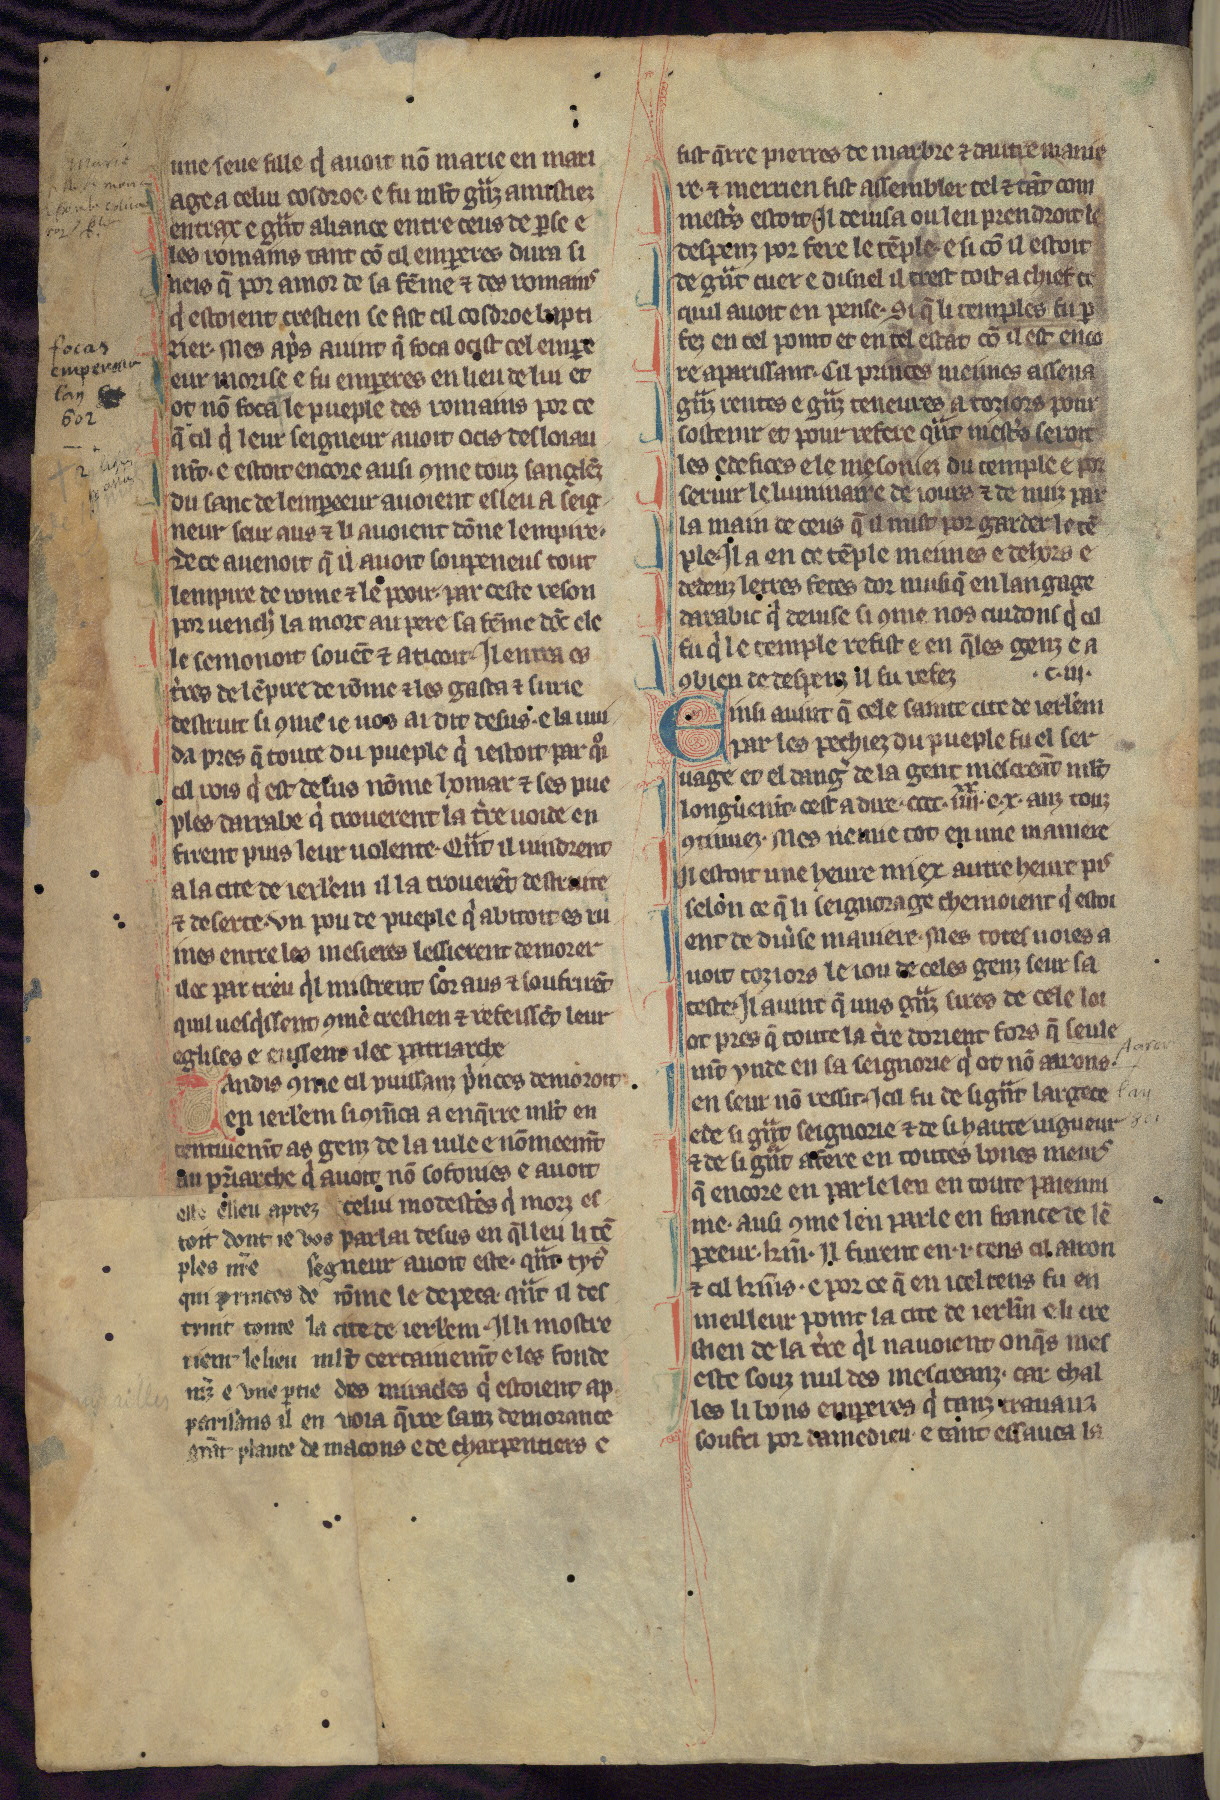 une seue fille q̇ auoit nō marie en mari
age a celui cosdroe· e fu ml̃t gñz amistiez
entrax e gñt aliance entre ceus de ꝑse e
les romains tant cō cil emꝑeres dura si
neis q̄ por amor de sa fēme ⁊ des romains
q̇ estoient crestien se fist cil cosdroe bapti
zier· Mes ap̃s auint q̄ foca ocist cel empe
eur morise e fu emꝑeres en lieu de lui et
ot nō foca le pueple des romains por ce
q̄ cil q̇ leur seigneur auoit ocis desloiau
mt̃· e estoit encore ausi ꝯme touz sanglēz
du sanc de lempeeur auoient esleu a seig
neur seur aus ⁊ li auoient dōne lempire·
de ce auenoit q̄ il auoit soupeneus tout
lempire de rome ⁊ le pooir· par ceste reson
por uench̃ la mort au pere sa fēme dōt ele
le semonoit souēt ⁊ aticoit· Il entra es
t̃res de lēpire de rōme ⁊ les gasta ⁊ surie
destruit si ꝯme ie uos ai dit desus· e la uui
da pres q̄ toute du pueple q̇ i estoit par q̊i
cil rois q̇ est desus nōme homar ⁊ ses pue
ples darrabe q̇ trouerent la t̃re uoide en
firent puis leur uolente· Qñt il uindrent
a la cite de ierl'em il la trouerēt destruite
⁊ deserte· Vn pou de pueple q̇ abitoit es ru
ines entre les mesieres lessierent demorer
ilec par treu q̇l mistrent sor aus ⁊ soufrirēt
quil uesq̇ssent ꝯme crestien ⁊ refeissēt leur
eglises e eussent ilec patriarche
Tandis ꝯme cil puissanz p̃nces demoroit
en ierl'em si ꝯm̃ca a enq̄rre ml̃t en
tentiuemt̃ as genz de la uile e nōmeemt̃
au pr̃iarche q̇ auoit nō sofonies e auoit
este esleu aprez celui modestes q̇ morz es
toit dont ie vos parlai desus en q̇l leu li tē
ples nr̃e segneur auoit este· qñt tyt⁹
qui princes de rōme le depeca· qñt il des
truit toute la cite de ierl'em· Il li mostre
rent le lieu ml̃t certainemt̃ e les fonde
mz̃ e vne ptie des miracles q̇ estoient ap
parisans il en uoia q̄rre sanz demorance
grāt plante de macons e de charpentiers e
fist q̄rre pierres de marbre ⁊ dautre manie
re· ⁊ merrien fist assembler tel ⁊ tāt com
mest̃s estoit· Il deuisa ou len prendroit le
despenz por fere le tēple· e si cō il estoit
de gñt cuer e disnel il trest tost a chief ce
quil auoit en pense· Si q̄ li temples fu ꝑ
fez en cel point et en tel estat cō il est enco
re aparissant· Cil princes meismes assena
gñz rentes e gñz teneures a toziors pour
sostenir et pour refere qñt mest̃s seroit
les edefices e le mesoniez du temple e por
seruir le luminaire de iours ⁊ de nuiz par
la main de ceus q̄ il mist por garder le tē
ple· Il a en ce tēple meimes e dehors e
dedenz letres fetes dor musiq̄ en langage
darabic q̇ deuise si ꝯme nos cuidons q̇ cil
fu q̇ le temple refist e en q̄les genz e a
ꝯbien de despenz il fu refez ·c·iii·
Einsi auint q̄ cele sainte cite de ierl'em
par les pechiez du pueple fu el ser
uage et el dang̃ de la gent mescreāt ml̃t
longuemt̃· cest a dire· cccc· iiii^xx· e·x· anz touz
ꝯtinuez· Mes ne mie tot en une maniere
Il estoit une heure miex autre heure pis
selon ce q̄ li seignorage chemoient q̇ estoi
ent de diu̇se maniere· Mes totes uoies a
uoit toziors le iou de celes genz seur sa
teste· Il auint q̄ uns gñz sires de cele loi
ot pres q̄ toute la t̃re dorient fors q̄ seule
mt̃ ynde en sa seignorie q̇ ot nō aarons·
en seur nō ressit· Icil fu de si gñt largece
e de si gñt seignorie ⁊ de si haute uigueur
⁊ de si gñt afere en toutes bones meurs
q̄ encore en parle len en toute paienni
me· ausi ꝯme len parle en france de lē
peeur· kr̃m̃· Il furent en·i·tens cil aaron
⁊ cil kr̃m̃s· e por ce q̄ en icel tens fu en
meilleur point la cite de ierl'm e li cre
stien de la t̃re q̇l nauoient onq̄s mes
este souz nul des mescreanz· car chal
les li bons emꝑeres q̇ tanz trauauz
soufri por damedieu· e tant essauca la
Marie
focas
empereur
lan
602
Aaron
lan